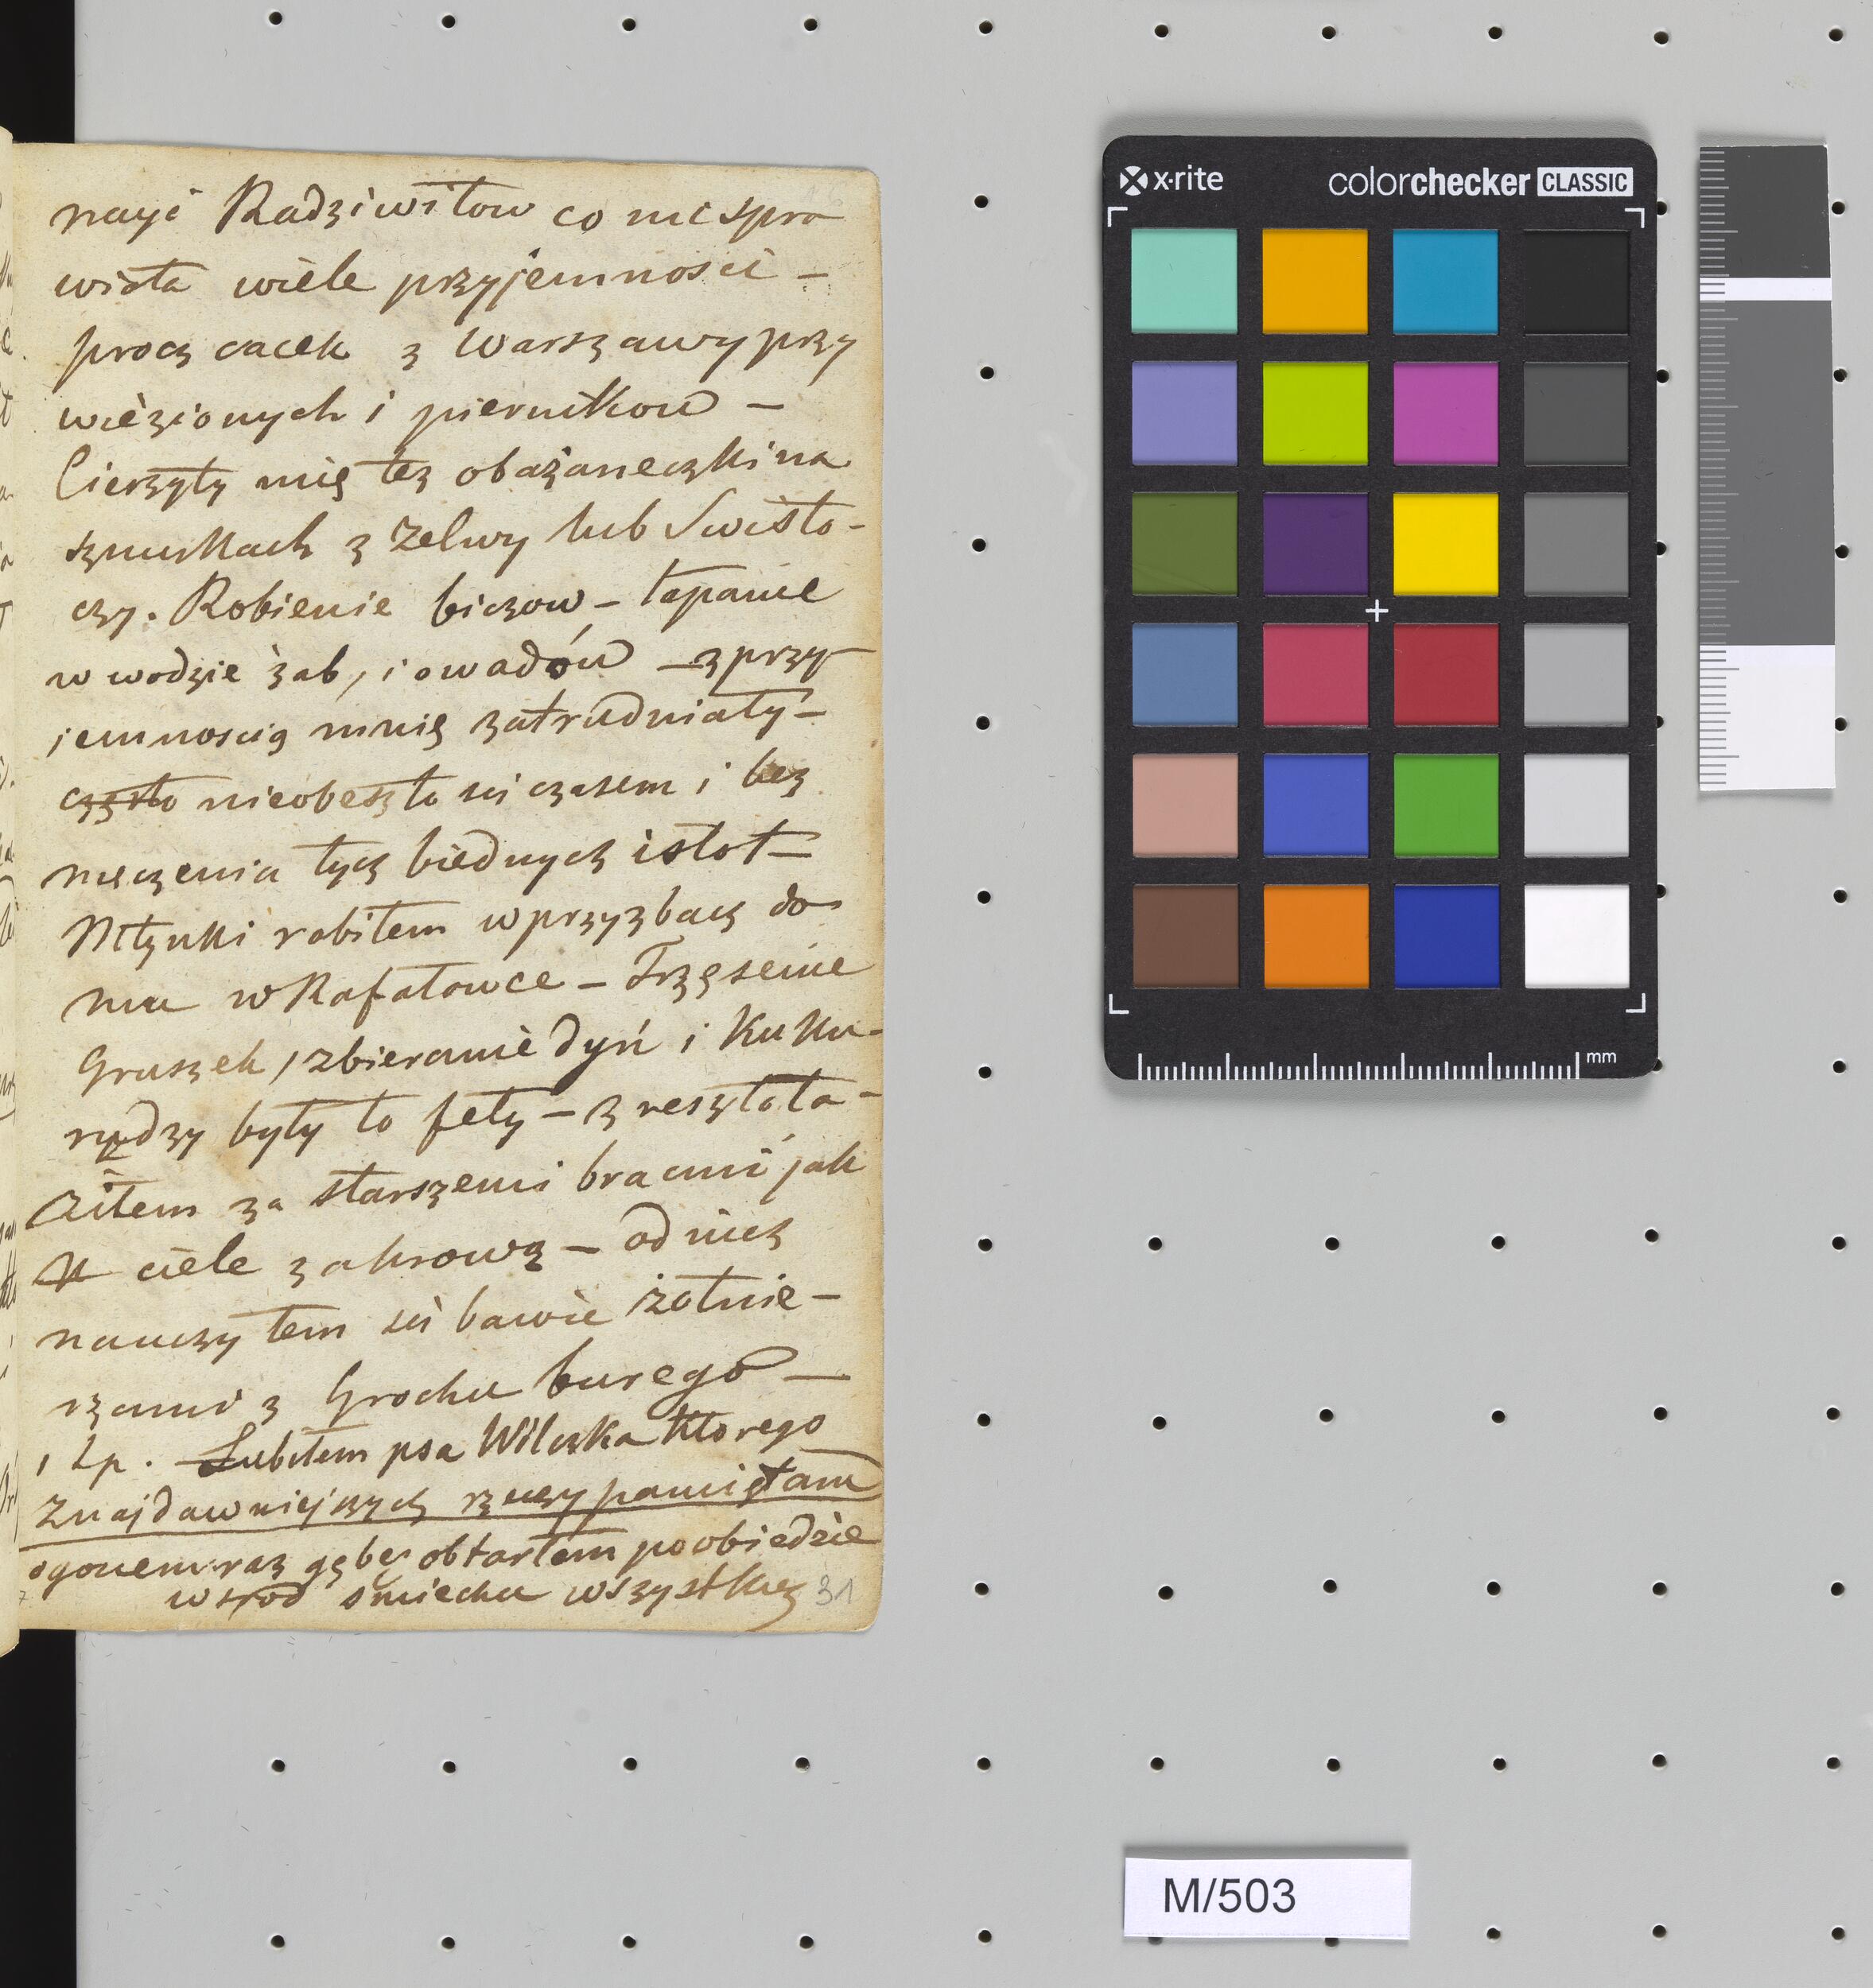 nayi Radziwiłow co mi spra
wiała wiele przyjemnosci –
procz cacek z Warszawy przy
wiezionych i piernikow –
Cieszyły mię tez obażaneczki na
sznurkach z Zelwy lub Swisło-
czy. Robienie biczow – łapanie
w wodzie żab, i owadów – z przy
jemnoscią mnię zatrudniały –
często nieobeszło się czasem i bez
męczenia tych biednych istot –
Młynki robiłem w przyzbach do
mu w Rafałowce – Trzęsienie
Gruszek, zbieranie dyń i Kuku-
rydzy były to fety – zresztą ła-
ziłem za starszemi bracmi jak
ciele za krową – od nich
nauczyłem się bawić żołnie-
rzami z Grochu burego –
i t.p. Lubiłem psa Wilczka ktorego
z najdawniejszych rzeczy pamiętam
ogonem raz gębę obtarłem po obiedzie
wsrod smiechu wszystkich
31
x-rite
colorchecker CLASSIC
mm
M/503